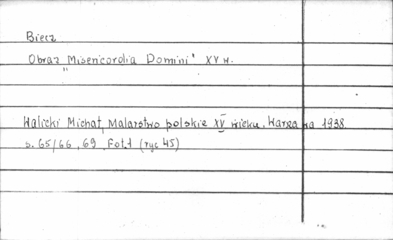 Biecz
Obraz "Misericordia Domini" XV w.
Walicki Michał, Malarstwo polskie XV wieku. Warszawa 1938.
s. 65/66, 69, Fot. 1 (ryc 45)